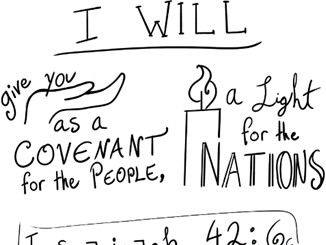 I WILL
give you
as a
COVENANT
for the PEOPLE,
a Light
for the
NATIONS
Isaiah 42:6c